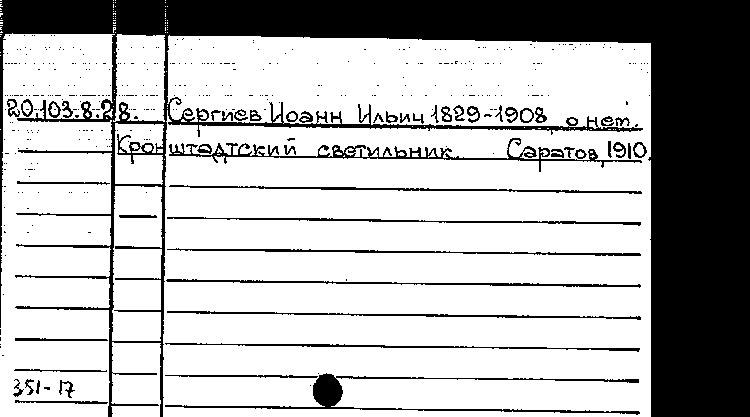 20.103.8.28. Сергиев Иоанн Ильич, 1829-1908, о нем.
Кронштадтский светильник. Саратов, 1910.
351-17